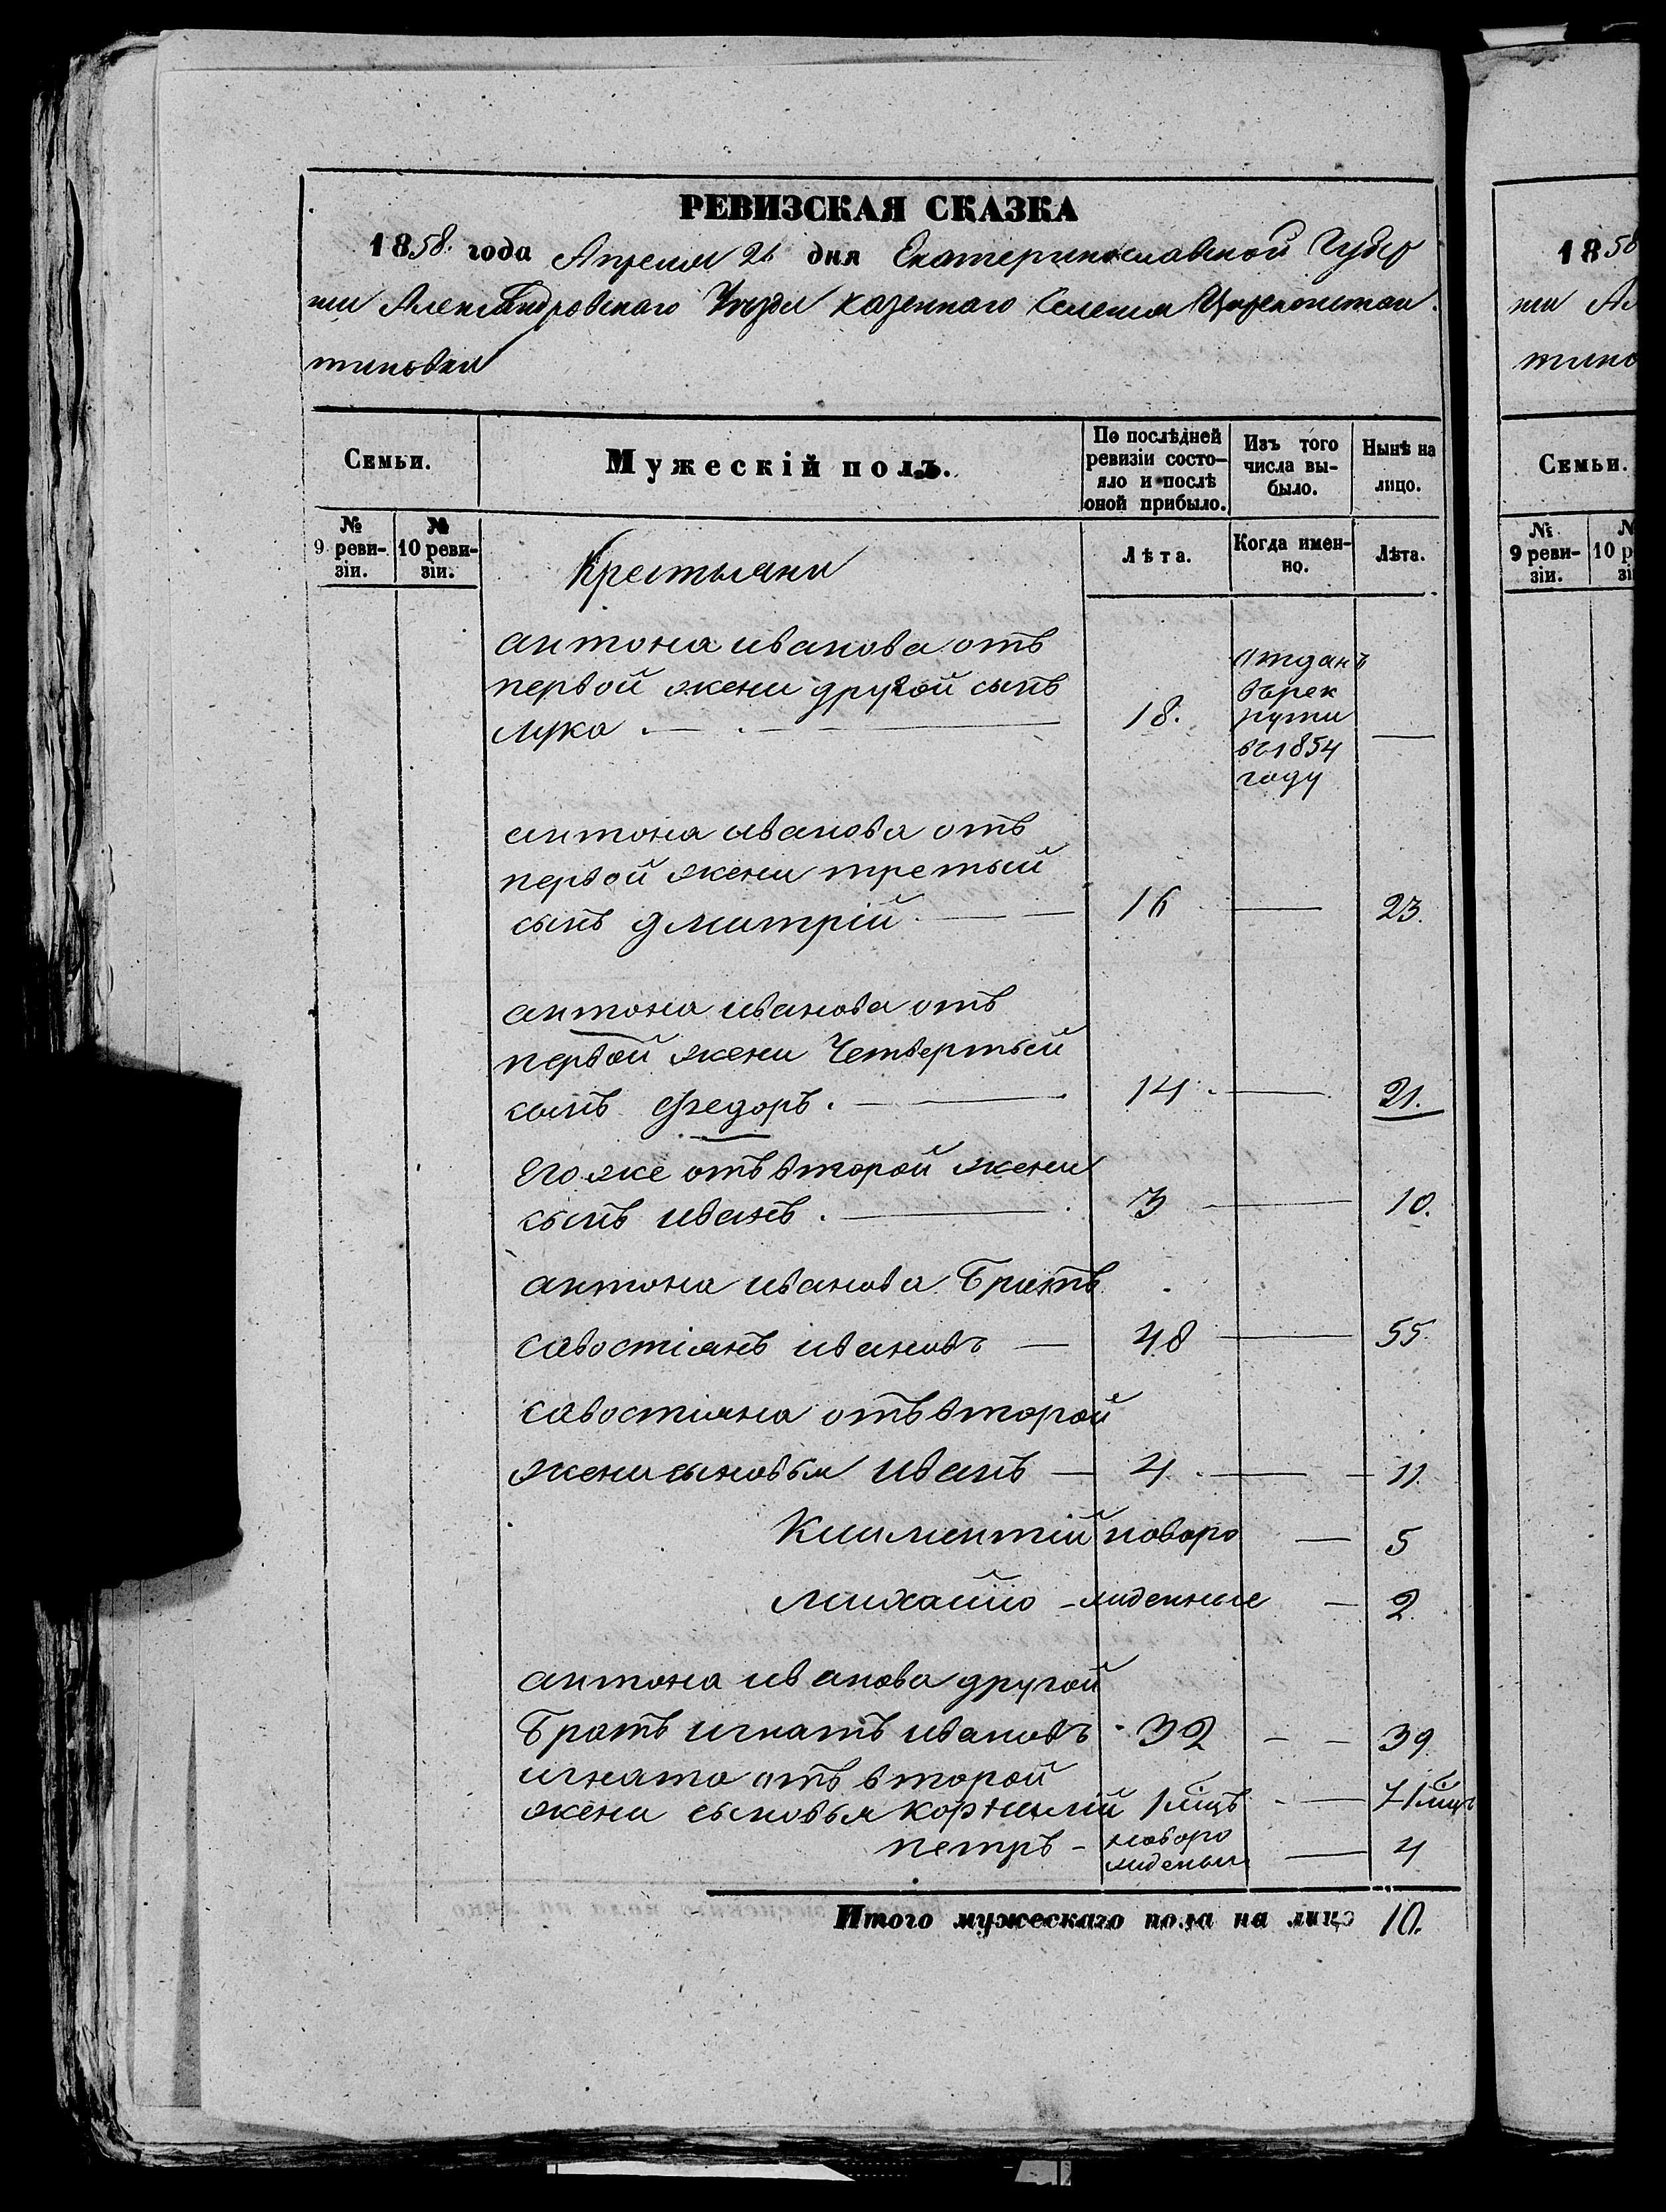 РЕВИЗСКАЯ СКАЗКА
1858. года Апреля 21 дня Екатеринославской Губер
ни Александровскаго Уезда казеннаго Селения Цареконстан
тиновки
Семьи.
Мужескій полъ.
По послѣдней ревизіи состояло и послѣ оной прибыло.
Изъ того числа выбыло.
Нынѣ на лицо.
№ 9 ревизіи.
№ 10 ревизіи.
Крестьяни
Лѣта.
Когда именно.
Лѣта.
антона иванова отъ
первой жени другой сынъ
лука 18. отданъ
въ рек
рути
въ 1854
году —
антона иванова отъ
первой жени третый
сынъ дмитрій — 16 — 23.
антона иванова отъ
первой жени Четвертый
сынъ Федоръ. — 14. — 21.
Его же отъ второй жени
сынъ иванъ. — 3 — 10.
антона иванова Братъ
савостіянъ ивановъ — 48 — 55
савостіяна отъ второй
жени сыновья иванъ — 4. — 11.
Климентій новоро — 5
михайло - жиденные — 2
антона иванова другой
Братъ игнатъ ивановъ 32 — 39.
игната отъ второй
жени сыновья корнилій 1 мцъ — 7 1 мцъ
петръ - новоро
жиденые — 4
Итого мужескаго пола на лицо 10.
1858
ни Ал
тино
Семьи.
№ 9 ревизіи.
10 р